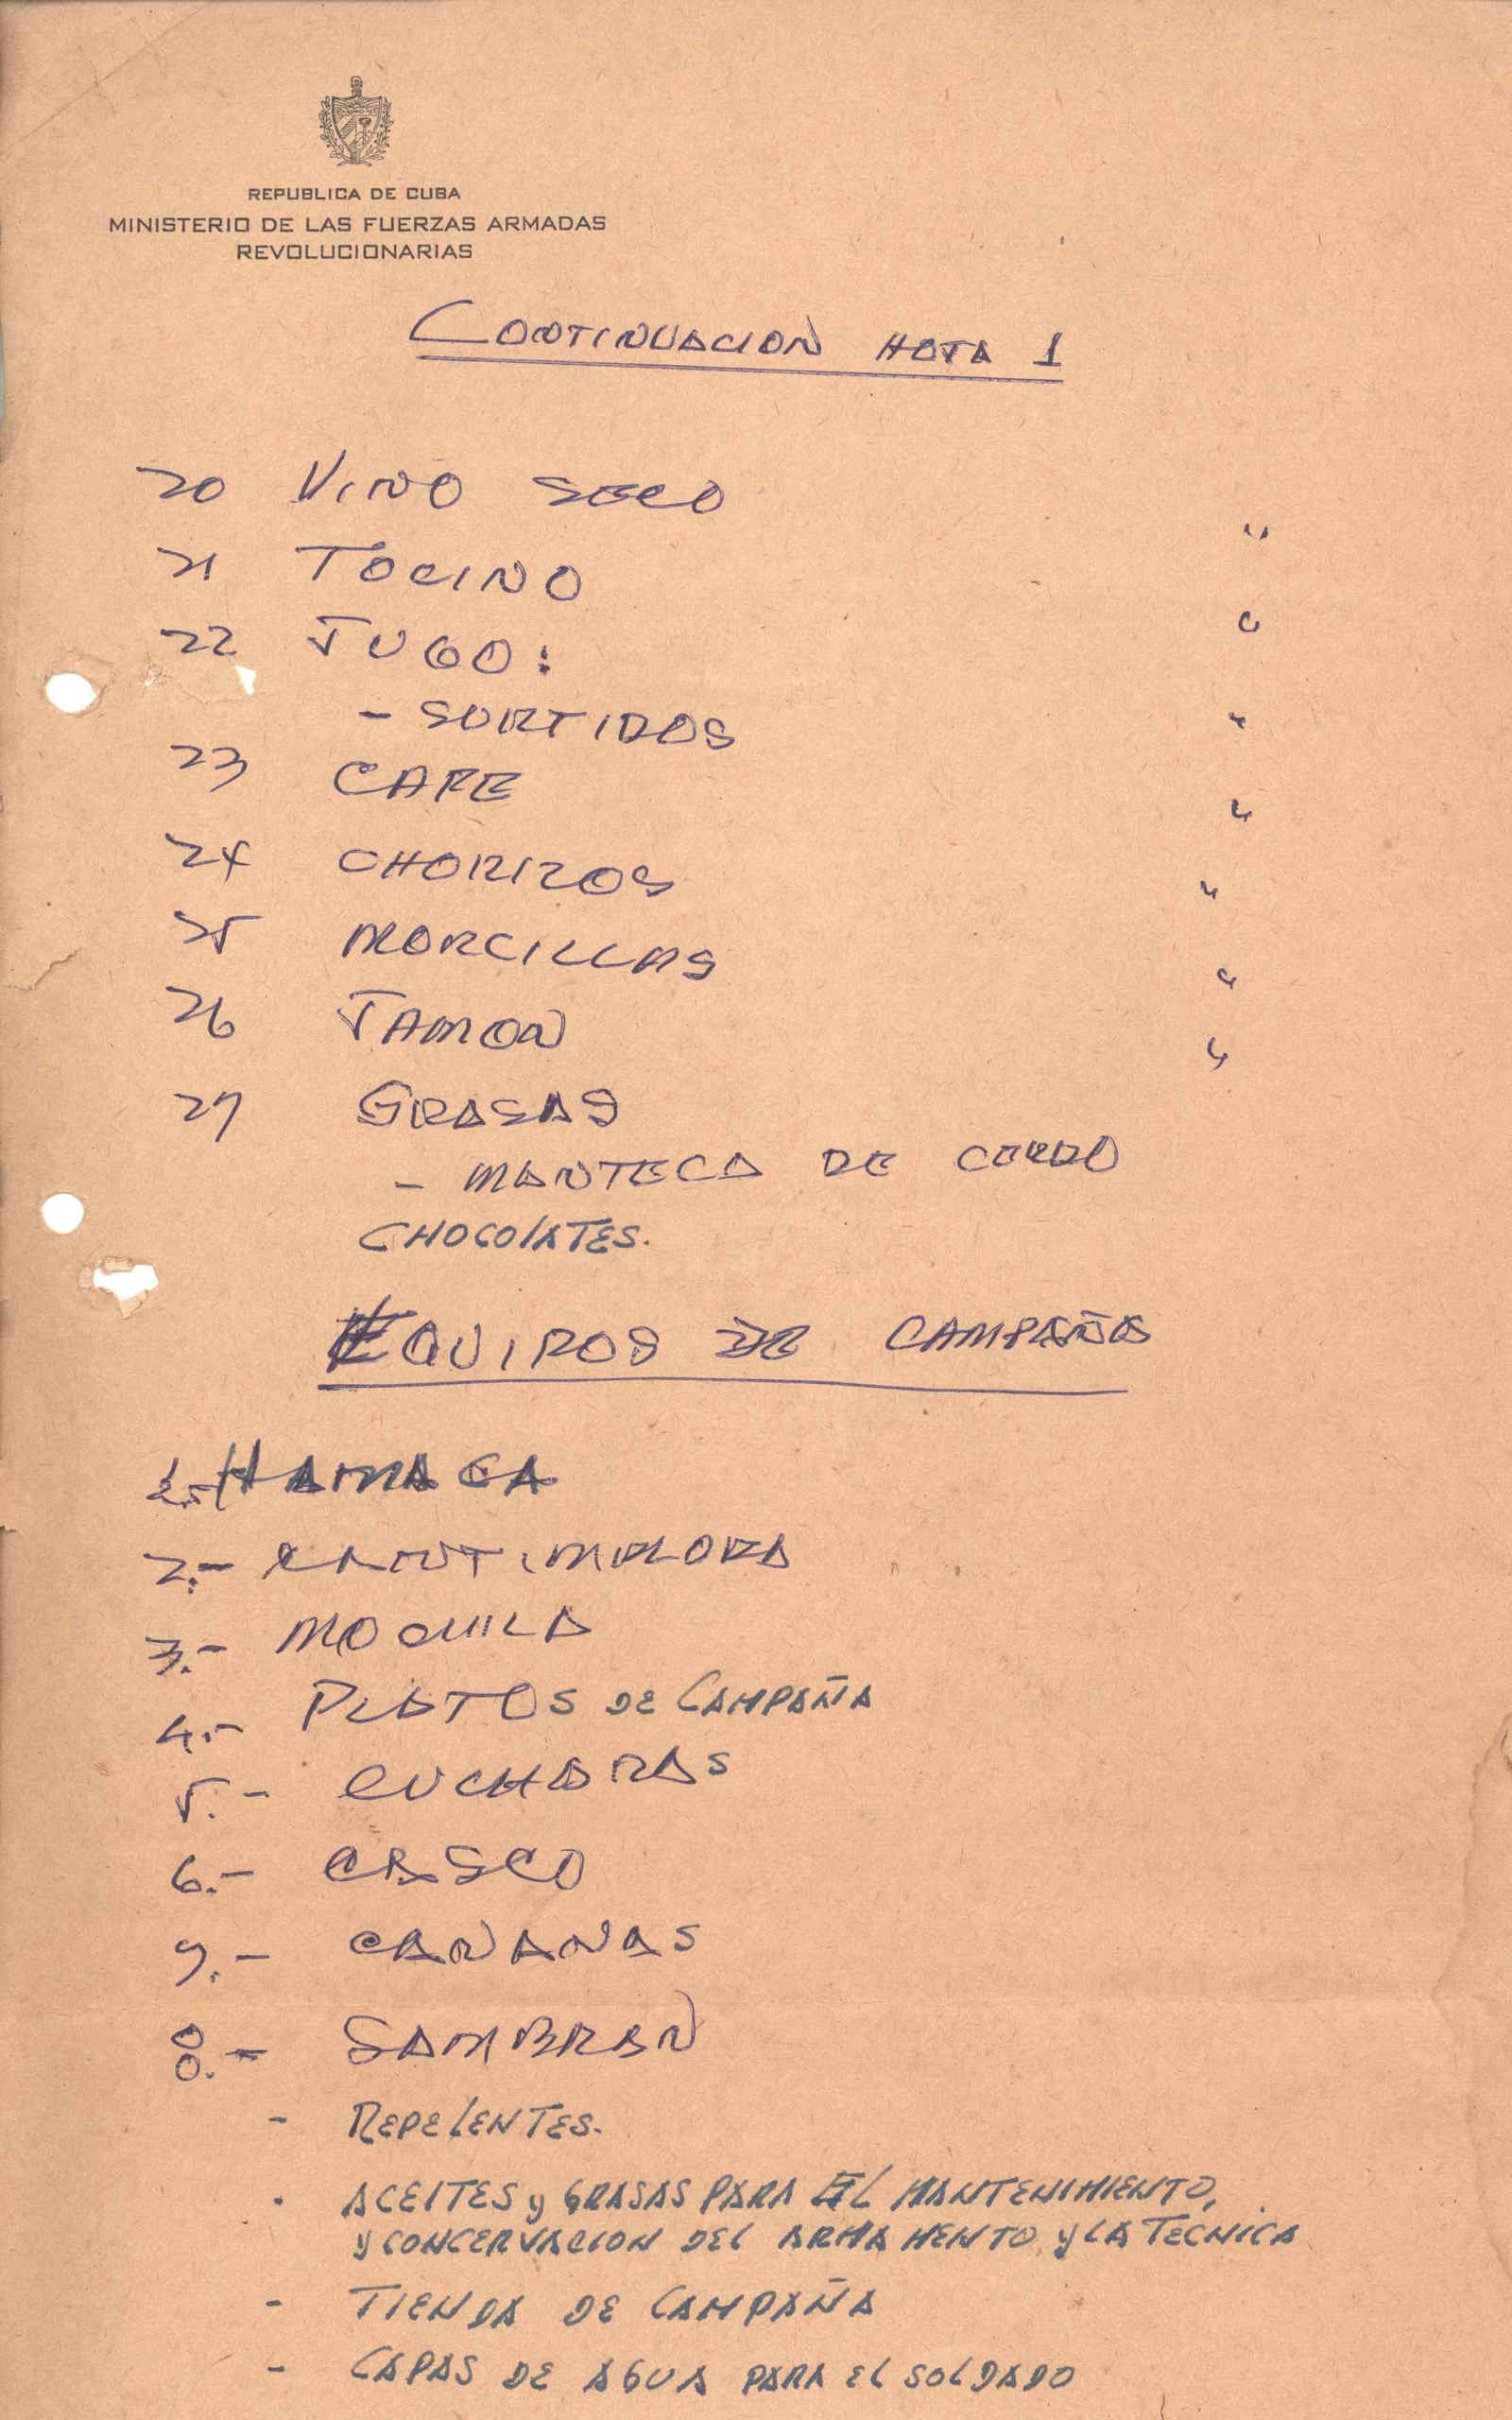 REPUBLICA DE CUBA
MINISTERIO DE LAS FUERZAS ARMADAS
REVOLUCIONARIAS
CONTINUACION HOJA 1
20 VINO SECO "
21 TOCINO "
22 JUGO:
- SURTIDOS "
23 CAFE "
24 CHORIZOS "
25 MORCILLAS "
26 JAMON "
27 GRASAS
- MANTECA DE CERDO
CHOCOLATES.
EQUIPOS DE CAMPAÑA
1.- HAMACA
2.- CANTIMPLORA
3.- MOCHILA
4.- PLATOS DE CAMPAÑA
5.- CUCHARAS
6.- CASCO
7.- CANANAS
8.- SAMBRAN
- REPELENTES.
- ACEITES y GRASAS PARA EL MANTENIMIENTO,
y CONCERVACION DEL ARMAMENTO y LA TECNICA
- TIENDA DE CAMPAÑA
- CAPAS DE AGUA PARA EL SOLDADO